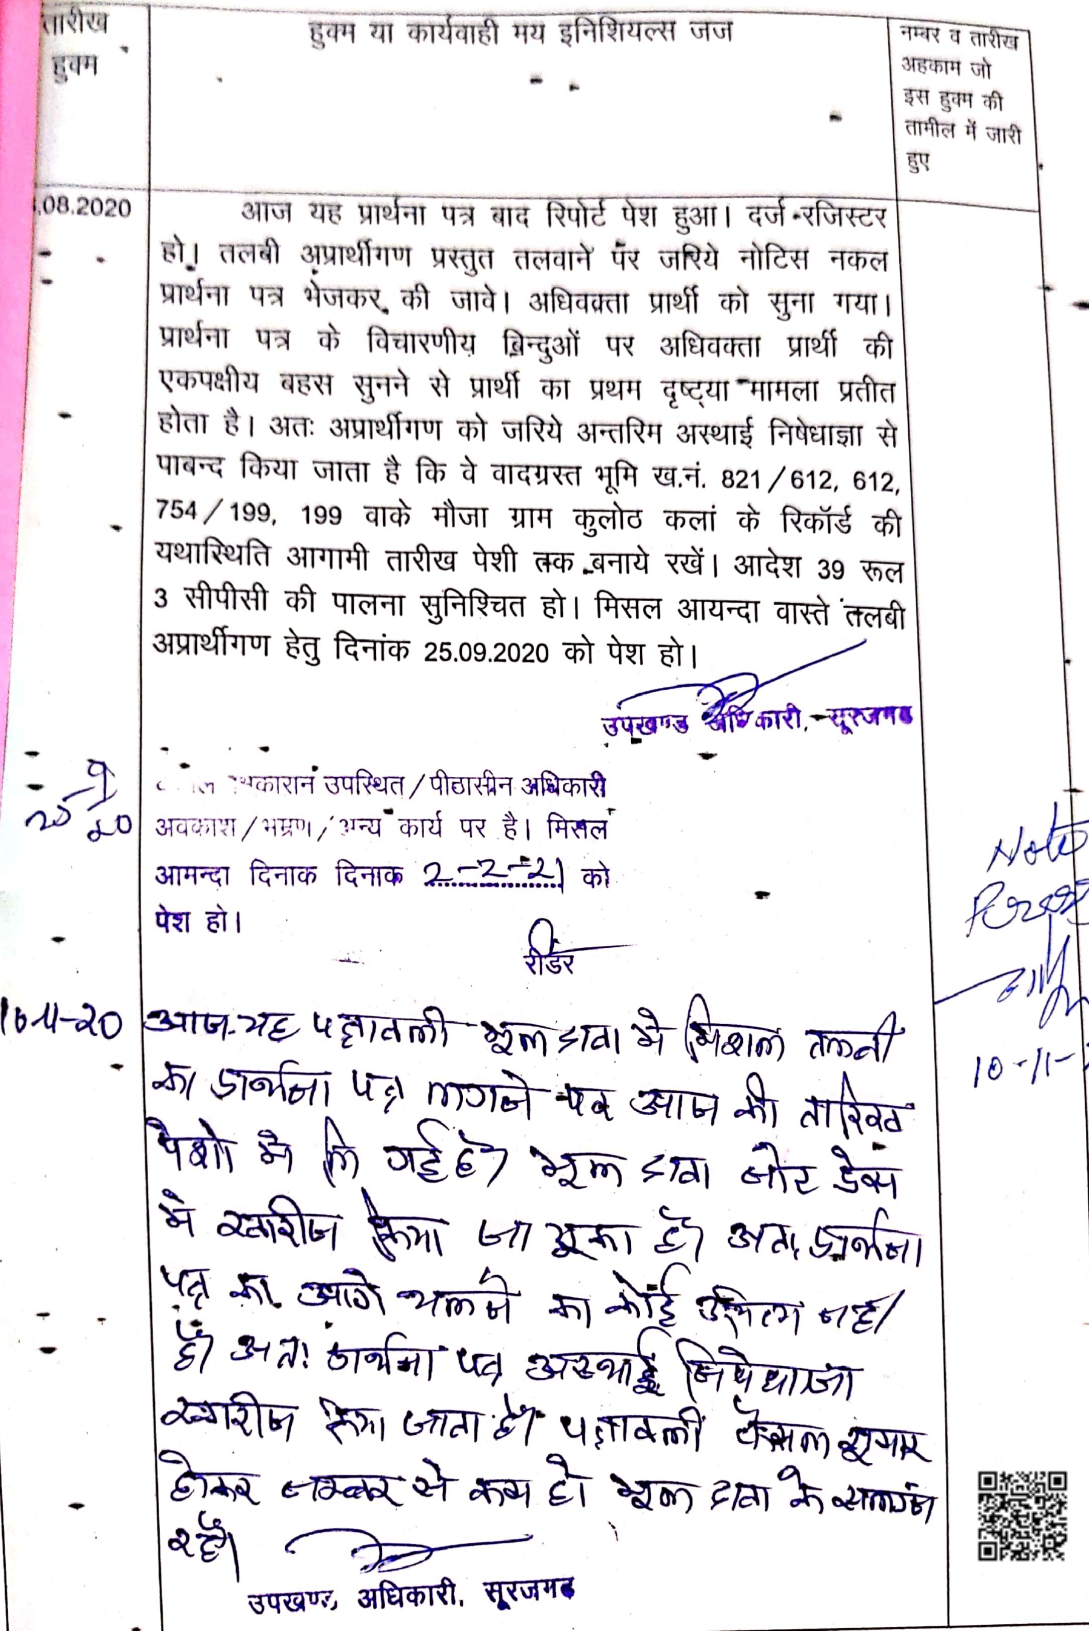 तारीख
हुक्म
हुक्म या कार्यवाही मय इनिशियल्स जज
नम्बर व तारीख
अहकाम जो
इस हुक्म की
तामील में जारी
हुए
.08.2020
आज यह प्रार्थना पत्र बाद रिपोर्ट पेश हुआ। दर्ज रजिस्टर
हो। तलबी अप्रार्थीगण प्रस्तुत तलवाने पर जरिये नोटिस नकल
प्रार्थना पत्र भेजकर की जावे। अधिवक्ता प्रार्थी को सुना गया।
प्रार्थना पत्र के विचारणीय बिन्दुओं पर अधिवक्ता प्रार्थी की
एकपक्षीय बहस सुनने से प्रार्थी का प्रथम दृष्ट्या मामला प्रतीत
होता है। अतः अप्रार्थीगण को जरिये अन्तरिम अस्थाई निषेधाज्ञा से
पाबन्द किया जाता है कि वे वादग्रस्त भूमि ख.नं. 821/612, 612,
754/199, 199 वाके मौजा ग्राम कुलोठ कलां के रिकॉर्ड की
यथास्थिति आगामी तारीख पेशी तक बनाये रखें। आदेश 39 रूल
3 सीपीसी की पालना सुनिश्चित हो। मिसल आयन्दा वास्ते तलबी
अप्रार्थीगण हेतु दिनांक 25.09.2020 को पेश हो।
उपखण्ड अधिकारी, सूरजगढ
उपस्थित/पीठासीन अधिकारी
अवकाश/भ्रमण/अन्य कार्य पर है। मिसल
आमन्दा दिनाक दिनाक 2-2-21 को
पेश हो।
रीडर
Note
10-11-
आज यह पत्रावली मूल दावा मे मिशल तलबी
का प्रार्थना पत्र लगाने पर आज की तारिख
पेशी मे ली गई है। मूल दावा नोट प्रेस
मे खारीज किया जा चूका है। अतः प्रार्थना
पत्र का आगे चलने का कोई औचित्य नही
है। अतः प्रार्थना पत्र अस्थाई निषेधाज्ञा
खारीज किया जाता है। पत्रावली फैसल शुमार
होकर नम्बर से कम हो मूल दावा के सलग्न
रहे।
उपखण्ड अधिकारी, सूरजगढ